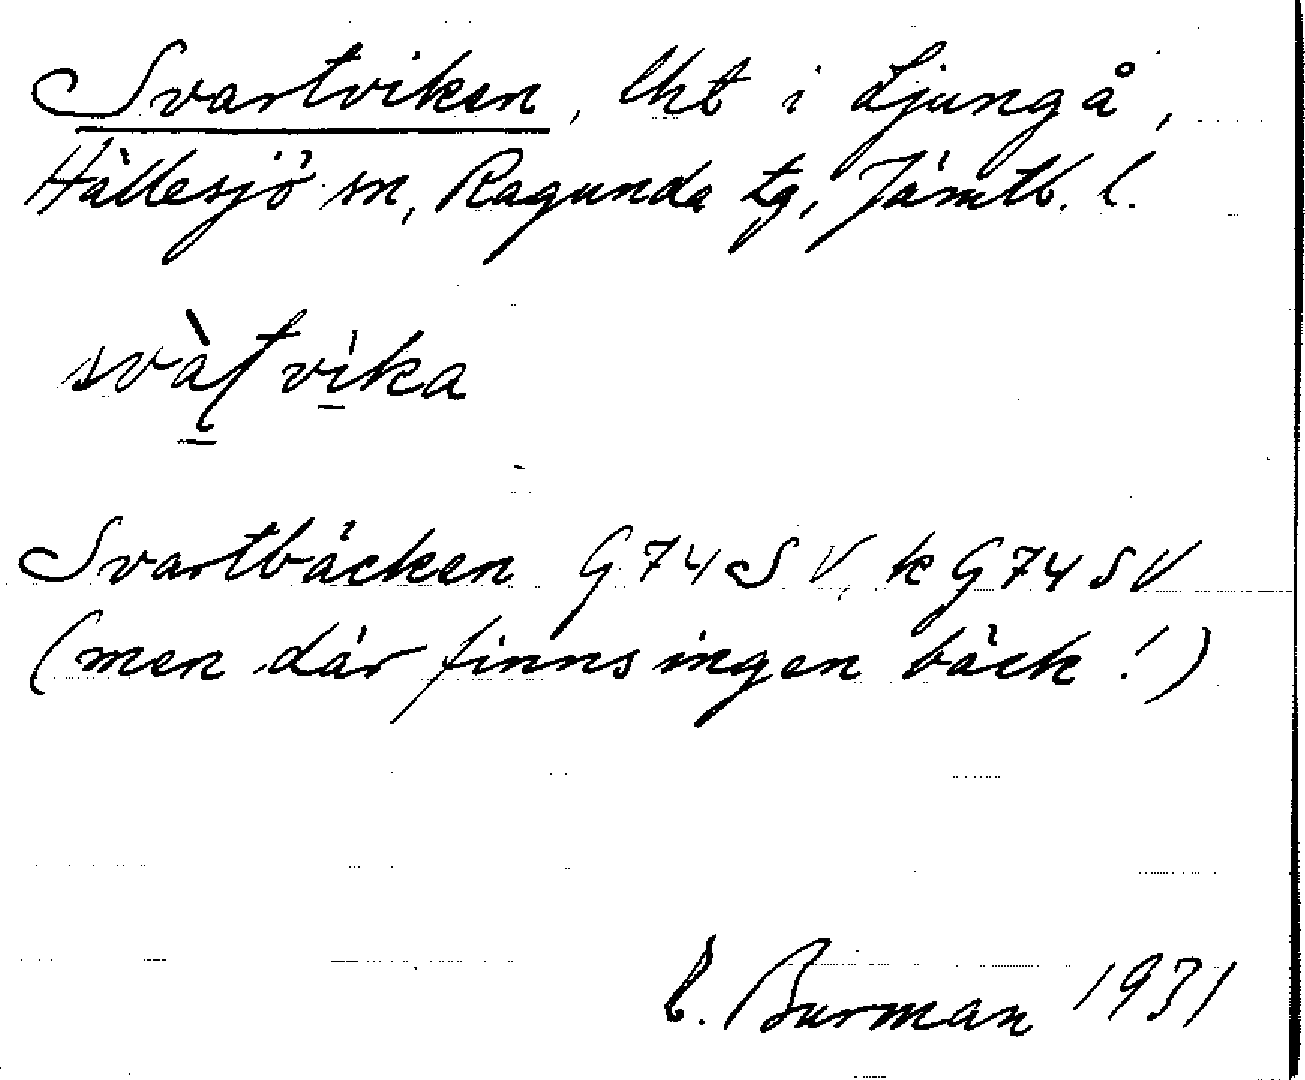 Svartviken, lht i Ljungå,
Hällesjö sn, Ragunda tg, Jämtl. l.
svàʈvika
Svartbäcken G74SV, k G74SV
(men där finns ingen bäck!)
C. Burman 1931